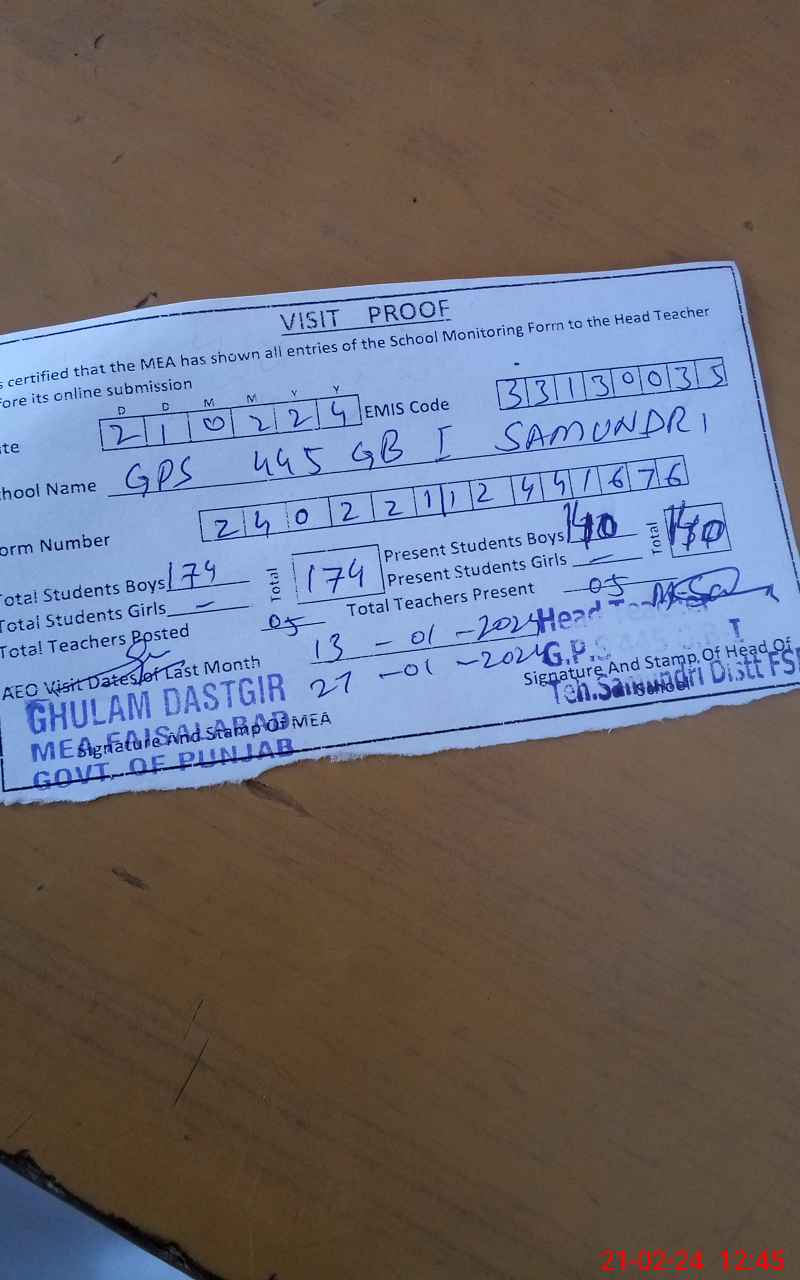 VISIT PROOF
s certified that the MEA has shown all entries of the School Monitoring Form to the Head Teacher
fore its online submission
D D M M Y Y
te 210224 EMIS Code 33130035
hool Name GPS 445 GB I SAMUNDRI
orm Number 24022112441676
otal Students Boys 174 Total 174 Present Students Boys 140 Total 140
Total Students Girls – Present Students Girls –
Total Teachers Posted 05 Total Teachers Present 05
AEO Visit Dates of Last Month 13-01-2024
27-01-2024
Head Teacher
G.P.S 445 G.B I
Signature And Stamp Of Head Of School
Teh.Samundri Distt FS
GHULAM DASTGIR
MEA FAISALABAD
Signature And Stamp Of MEA
GOVT. OF PUNJAB
21-02-24 12:45